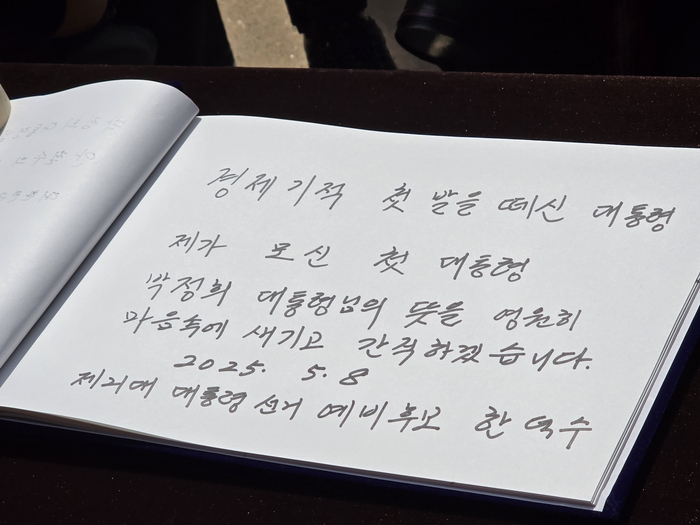 경제기적 첫 발을 떼신 대통령
제가 모신 첫 대통령
박정희 대통령님의 뜻을 영원히
마음속에 새기고 간직하겠습니다.
2025. 5. 8
제21대 대통령선거 예비후보 한덕수